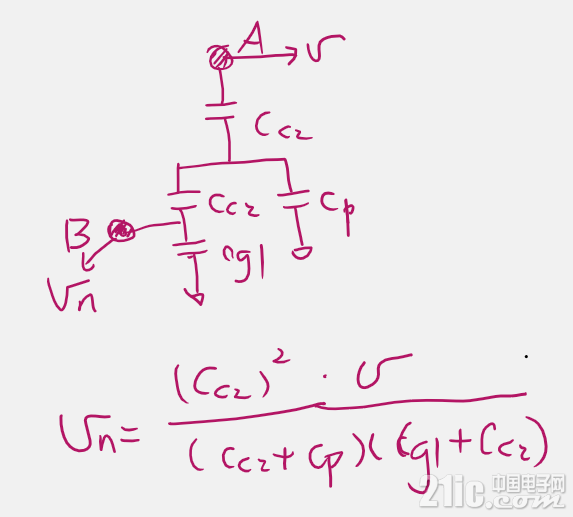 A
v
Cc2
Cc2
Cp
B
Cg1
vn
vn= (Cc2)² · v
(Cc2+Cp)(Cg1+Cc2)
21ic.com
中国电子网